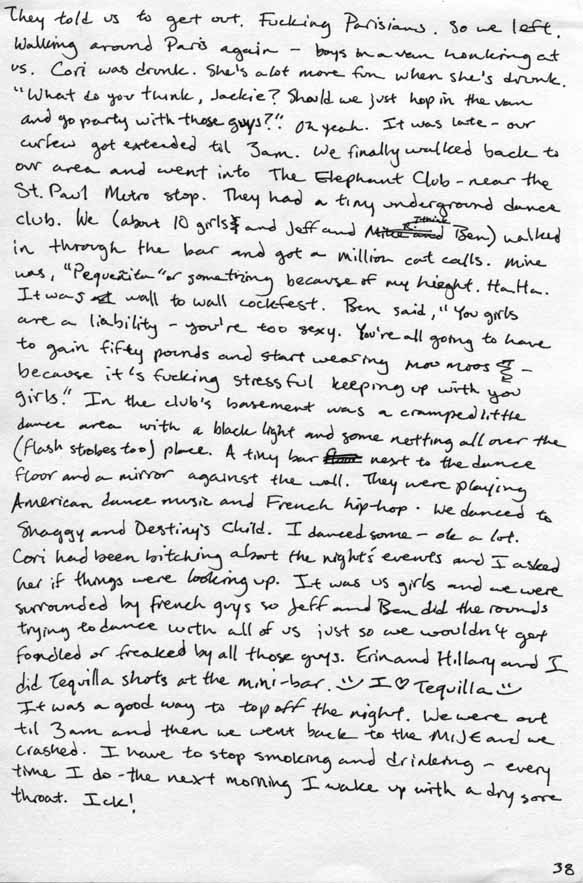 They told us to get out. Fucking Parisians. So we left.
Walking around Paris again - boys in a van honking at
us. Cori was drunk. She's a lot more fun when she's drunk.
"What do you think, Jackie? Should we just hop in the van
and go party with those guys?" Oh yeah. It was late - our
curfew got extended til 3am. We finally walked back to
our area and went into The Elephant Club - near the
St. Paul Metro stop. They had a tiny underground dance
club. We (about 10 girls and Jeff and Ben) walked
in through the bar and got a million cat calls. Mine
was, "Pequeñita" or something because of my hieght. Ha.Ha.
It was wall to wall cockfest. Ben said, "You girls
are a liability - you're too sexy. You're all going to have
to gain fifty pounds and start wearing mou moos -
because it's fucking stressful keeping up with you
girls." In the club's basement was a cramped little
dance area with a black light and some netting all over the
(flash strobes too) place. A tiny bar next to the dance
floor and a mirror against the wall. They were playing
American dance music and French hip-hop. We danced to
Shaggy and Destiny's Child. I danced some - ok a lot.
Cori had been bitching about the night's events and I asked
her if things were looking up. It was us girls and we were
surrounded by French guys so Jeff and Ben did the rounds
trying to dance with all of us just so we wouldn't get
fondled or freaked by all those guys. Erin and Hillary and I
did Tequilla shots at the mini-bar. I ♡ Tequilla
It was a good way to top off the night. We were out
til 3am and then we went back to the MIJE and we
crashed. I have to stop smoking and drinking - every
time I do - the next morning I wake up with a dry sore
throat. Ick!
38